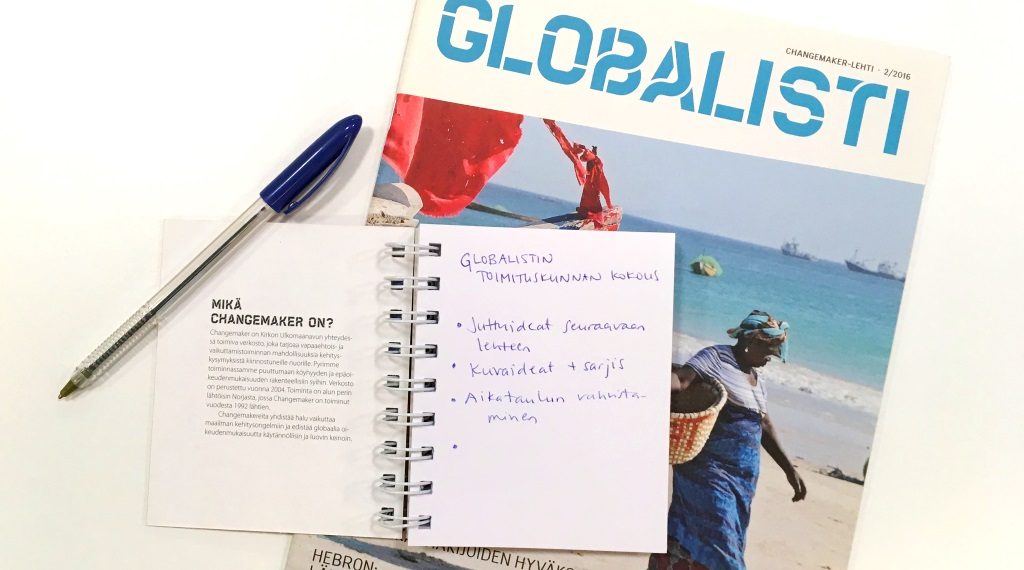 GLOBALISTI
CHANGEMAKER-LEHTI · 2/2016
MIKÄ
CHANGEMAKER ON?
Changemaker on Kirkon Ulkomaanavun yhteydes-
sä toimiva verkosto, joka tarjoaa vapaaehtois- ja
vaikuttamistoiminnan mahdollisuuksia kehitys-
kysymyksistä kiinnostuneille nuorille. Pyrimme
toiminnassamme puuttumaan köyhyyden ja epäoi-
keudenmukaisuuden rakenteellisiin syihin. Verkosto
on perustettu vuonna 2004. Toiminta on alun perin
lähtöisin Norjasta, jossa Changemaker on toiminut
vuodesta 1992 lähtien.
Changemakereita yhdistää halu vaikuttaa
maailman kehitysongelmiin ja edistää globaalia oi-
keudenmukaisuutta käytännöllisin ja luovin keinoin.
GLOBALISTIN
TOIMITUSKUNNAN KOKOUS
• Juttuideat seuraavaan
lehteen
• Kuvaideat + sarjis
• Aikataulun vahvista-
minen
•
HYVÄKS
HEBRON: